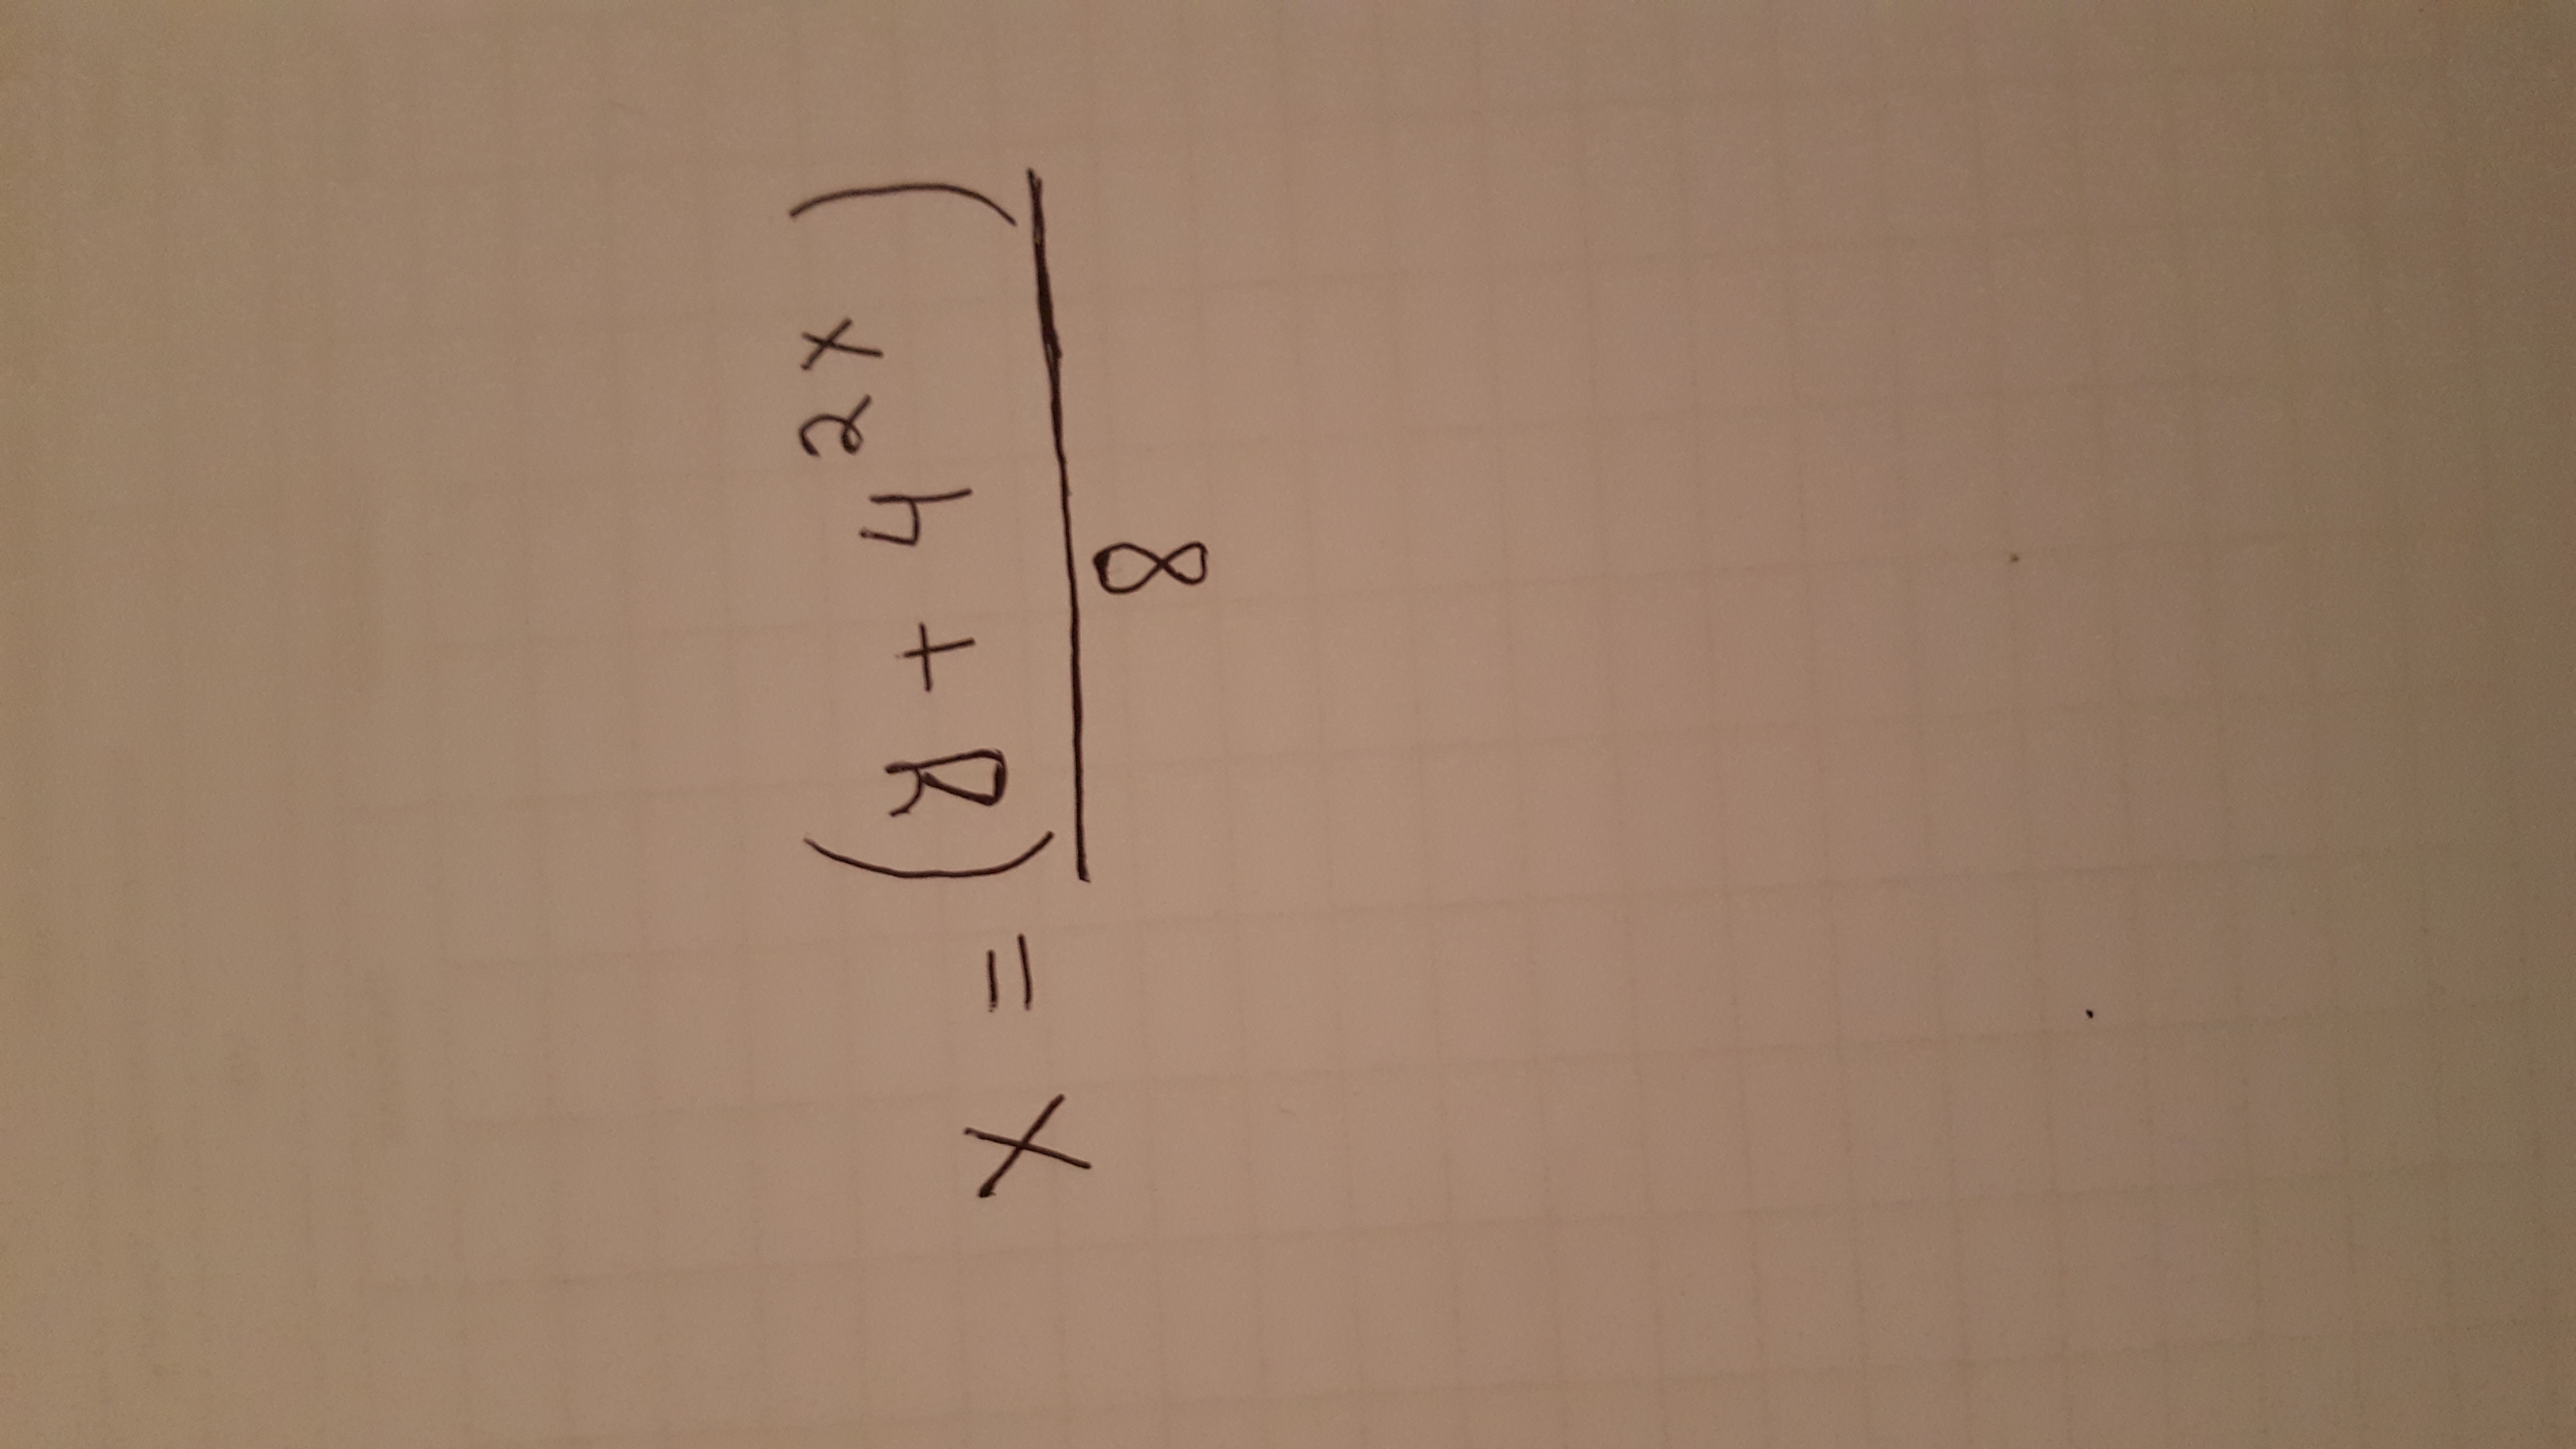 x = (y + 4^{2x}) / 8